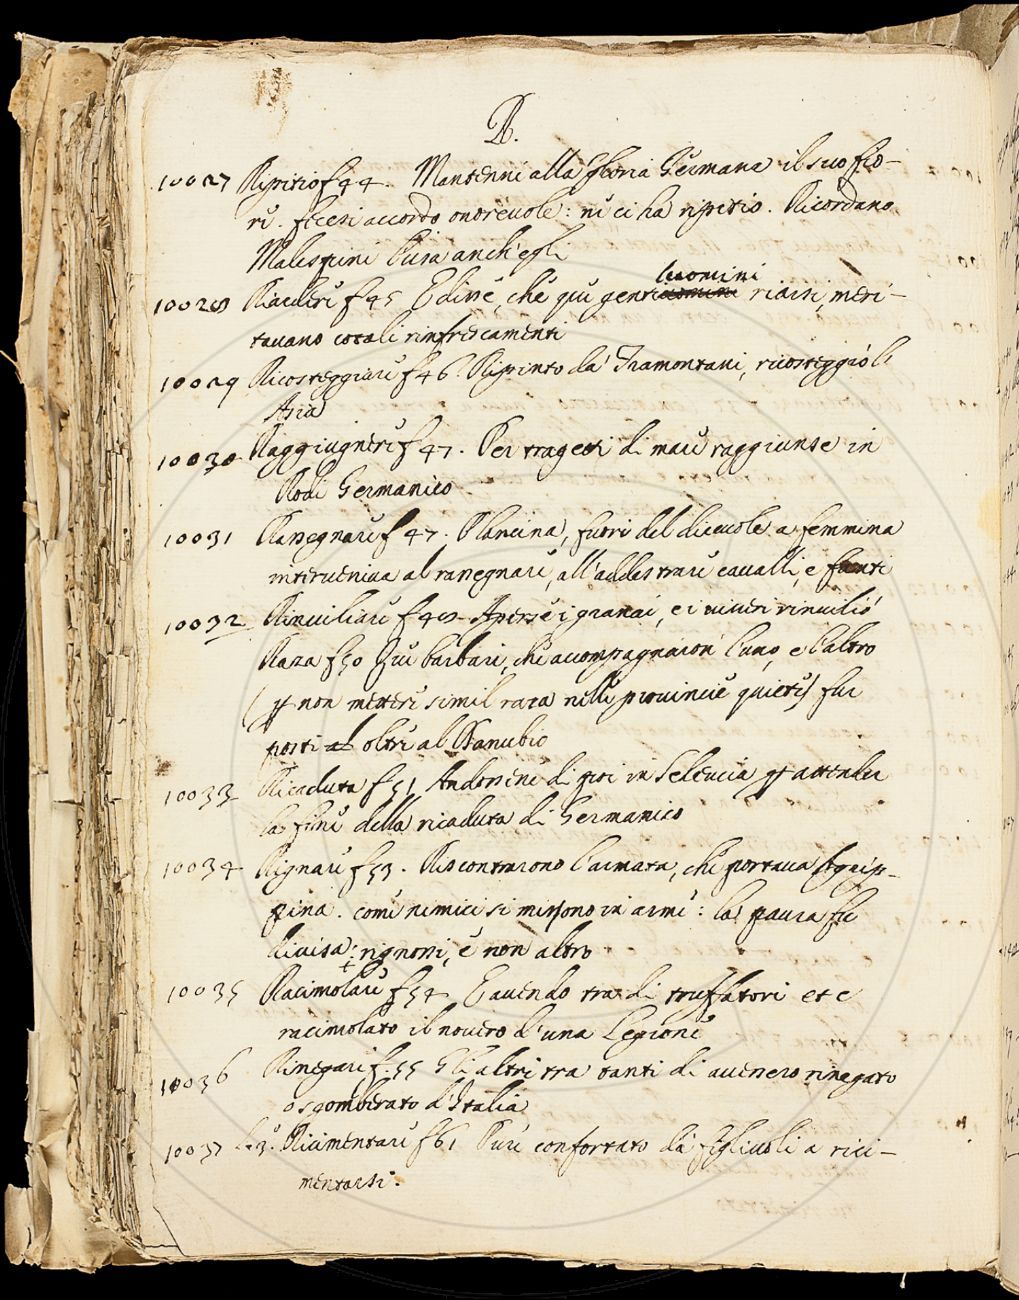 R.
10027 Ripitio f 44. Mantenne alla gloria Germana il suo fio-
re. fecesi accordo onorevole: ne ci ha ripitio. Ricordano
Malespini l'usa anch'egli
10028 Riardere f 45 E disse, che que genti huomini riarsi, meri-
tavano cotali rinfrescamenti
10029 Ricosteggiare f 46 Ripinto da Tramontani, ricosteggiò l'
Asia
10030 Raggiugnere f 47. Per tragetti di mare raggiunse in
Rodi Germanico
10031 Rasegnare f 47. Plancina, fuori del dicevole a femmina
interveniva al rasegnare, all'addestrare cavalli, e fanti
10032 Rinviliare f 48 Aperse i granai, e i viveri rinviliò
Raza f 50 Que barbari, che accompagnaron l'uno, e l'altro
(per non mettere simil raza nelle provincie quiete) fur
posti oltre al Danubio
10033 Ricaduta f 51 Andonene di poi in Seleucia per attender
la fine della ricaduta di Germanico
10034 Rignare f 53. Riscontrarono l'armata, che portava Agrip-
pina. come nimici si misono in arme: la paura fu
divisa: rignossi, e non altro
10035 Racimolare f 54 E avendo tra di truffatori etc
racimolato il novero d'una Legione
10036 Rinegare f. 55 Gli altri tra tanti dì avessero rinegato
o sgomberato d'Italia
10037 Ricimentare f 61 Pure confortato da figliuoli a rici-
mentarsi.